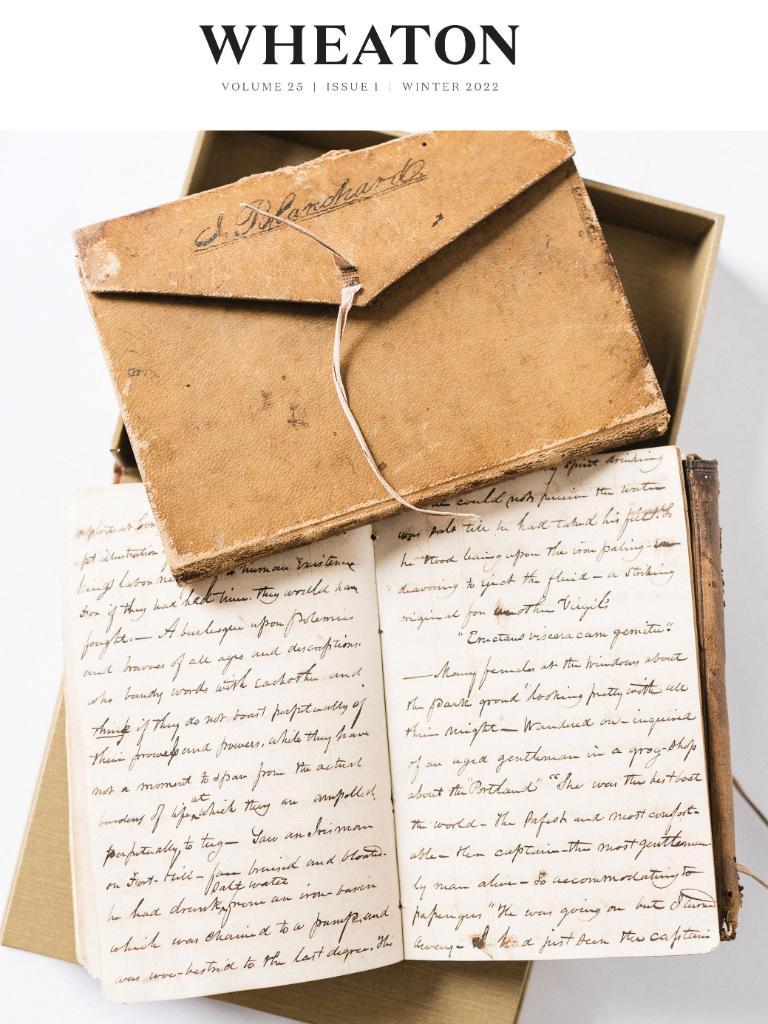 WHEATON
VOLUME 25 | ISSUE 1 | WINTER 2022
J. Blanchard
apt illustration
human Existence
tion if they had had time. they would have
fought. — A burlesque upon polemics
and braves of all ages and descriptions.
who bandy words with each other and
think if they do not boast perpetually of
their prowess and powers. while they have
not a moment to spare from the actual
burdens of life at which they are compelled
perpetually to tug — Saw an Irishman
on Fort-Hill — face bruised and bloated.
he had drunk salt water from an iron-basin
which was chained to a pump, and
was woe-bestrid to the last degree. His
spirit drinking
he could not perceive the water
was salt till he had taked his fill. So
he stood laying upon the iron paling en-
deavoring to eject the fluid — a striking
original for another Virgil's
"Eructans viscera cum gemitu".
— Many females at the windows about
the park ground "looking pretty with all
their might" — Wandered on — inquired
of an aged gentleman in a grog-shop
about the "Portland" "She was the best boat
the world — the safest and most comfort-
able — then captain — the most gentleman-
ly man alive — So accommodating to
passengers" He was going on but I turned
away — I had just seen the captain